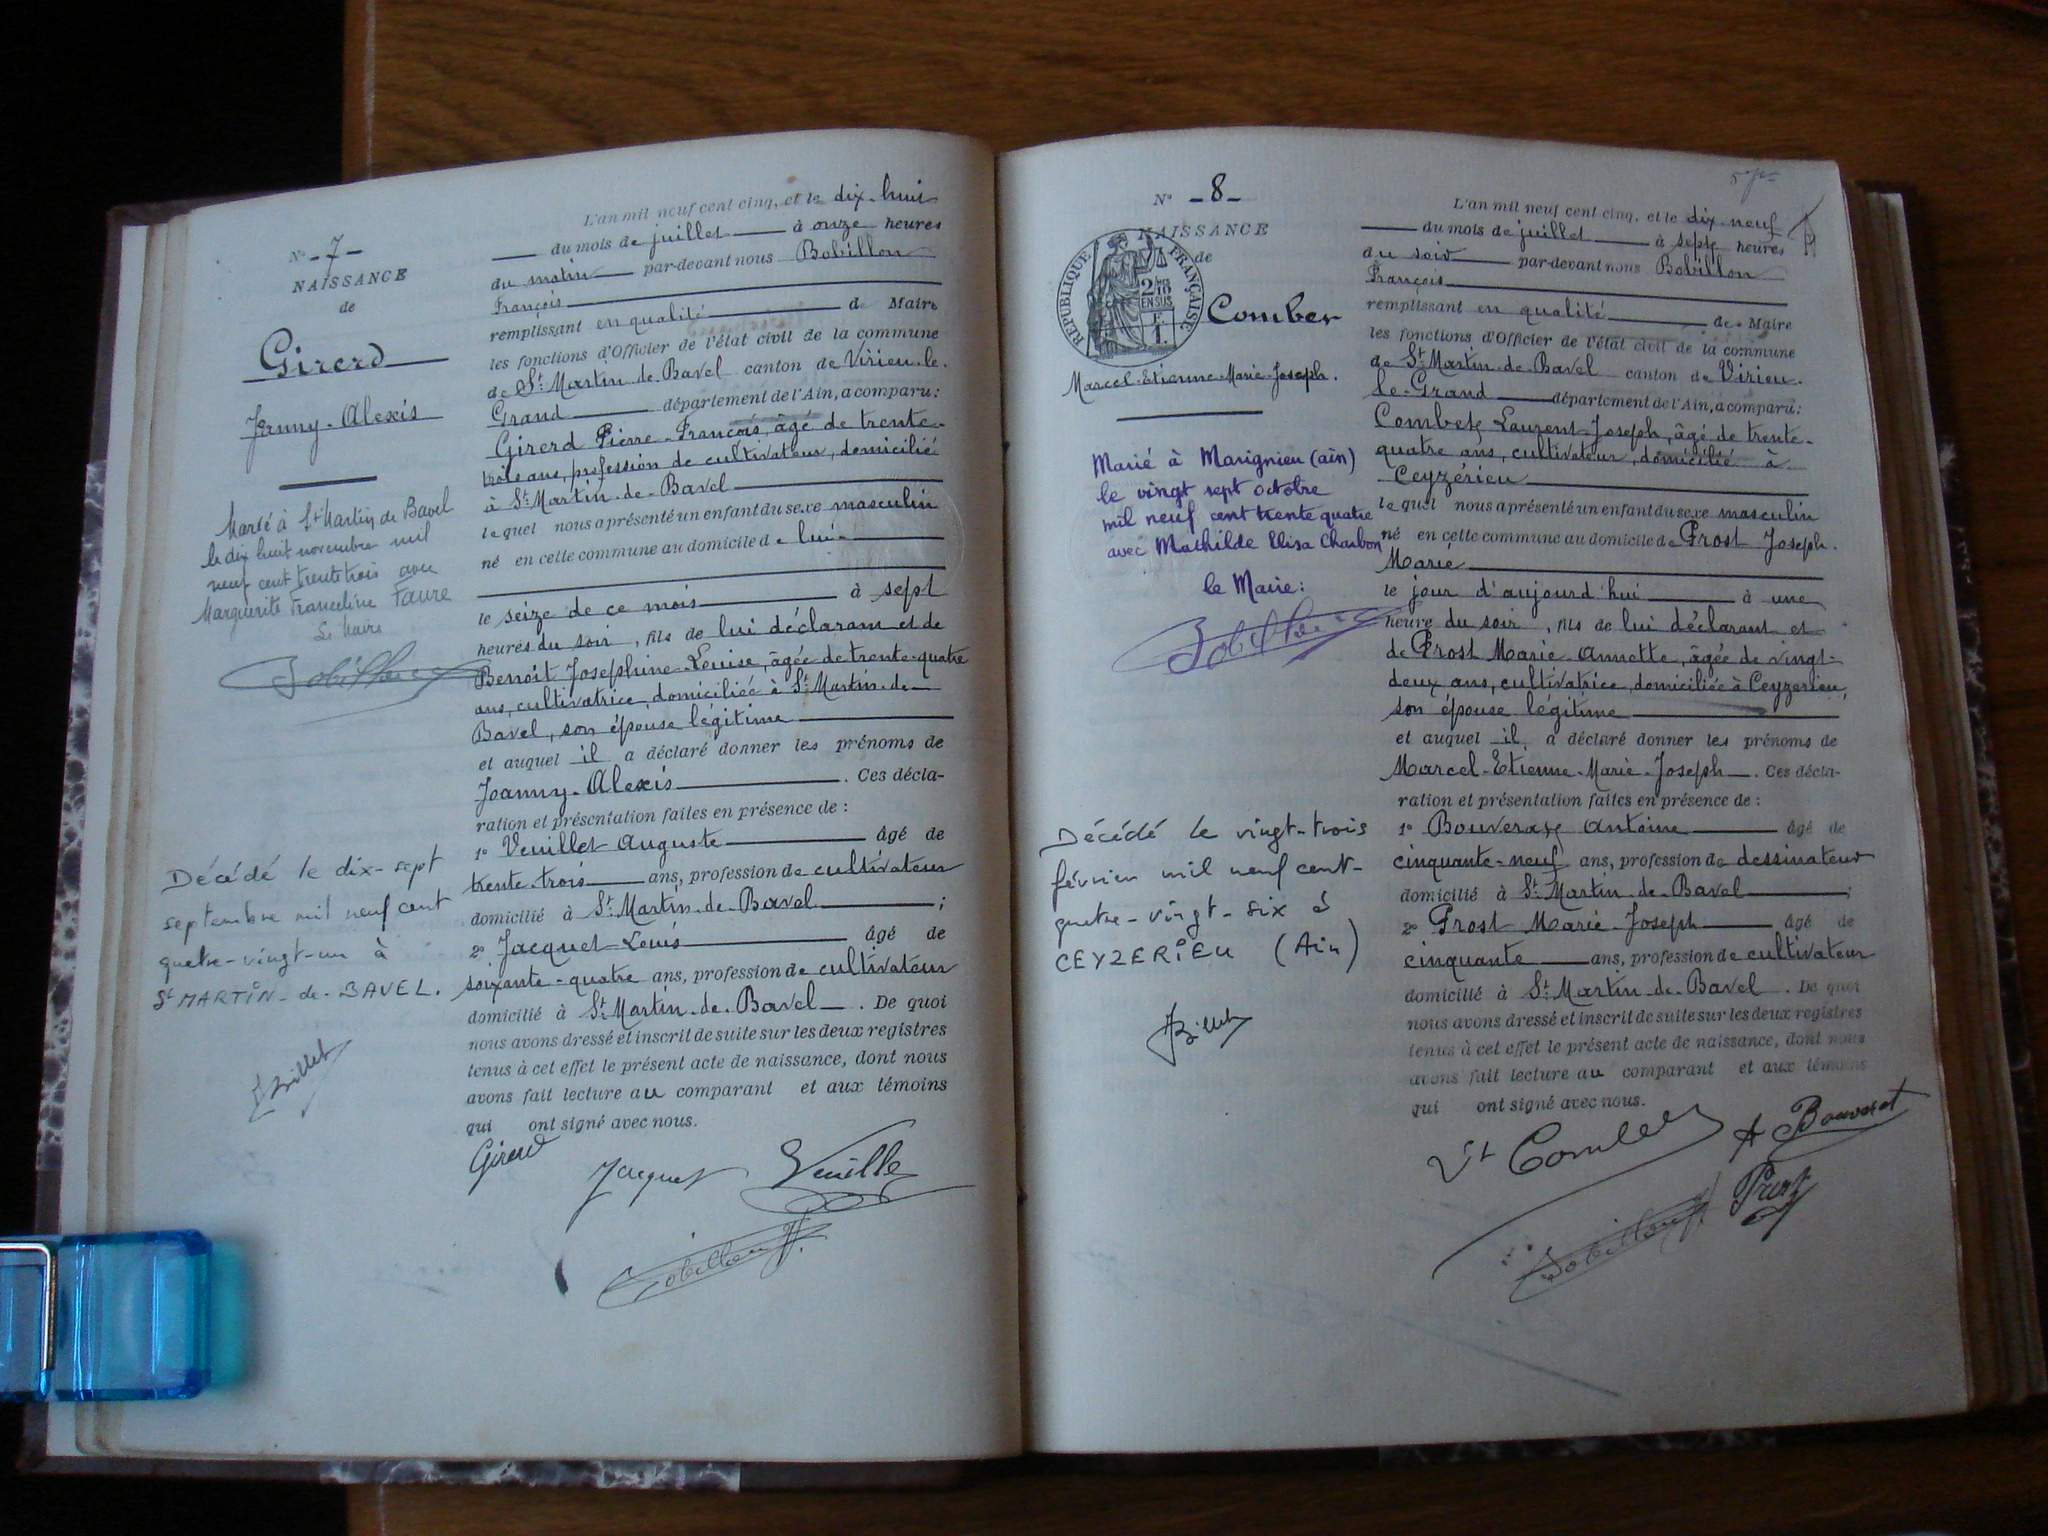 N° - 7 -
NAISSANCE
de
Girerd
Joanny-Alexis
Marié à St Martin de Bavel
le dix huit novembre mil
neuf cent trente trois avec
Marguerite Franceline Favre
Le Maire
Décédé le dix-sept
septembre mil neuf cent
quatre-vingt-un à
St MARTIN-de-BAVEL.
Billet
L'an mil neuf cent cinq, et le dix-huit
du mois de juillet à onze heures
du matin par-devant nous Bobillon
François
remplissant en qualité de Maire
les fonctions d'Officier de l'état civil de la commune
de St Martin-de-Bavel canton de Virieu-le-
Grand département de l'Ain, a comparu:
Girerd Pierre-François, âgé de trente-
trois ans, profession de cultivateur, domicilié
à St Martin-de-Bavel
lequel nous a présenté un enfant du sexe masculin
né en cette commune au domicile de lui
le seize de ce mois à sept
heures du soir, fils de lui déclarant et de
Benoît Joséphine-Louise, âgée de trente-quatre
ans, cultivatrice, domiciliée à St Martin-de-
Bavel, son épouse légitime
et auquel il a déclaré donner les prénoms de
Joanny-Alexis. Ces décla-
ration et présentation faites en présence de :
1° Veuillet Auguste âgé de
trente-trois ans, profession de cultivateur
domicilié à St Martin-de-Bavel ;
2° Jacquet Louis âgé de
soixante-quatre ans, profession de cultivateur
domicilié à St Martin-de-Bavel. De quoi
nous avons dressé et inscrit de suite sur les deux registres
tenus à cet effet le présent acte de naissance, dont nous
avons fait lecture au comparant et aux témoins
qui ont signé avec nous.
Girerd
Jacquet Veuille
Bobillon F.
N° - 8 -
NAISSANCE
de
RÉPUBLIQUE FRANÇAISE
2/10
EN SUS
F.
1.
Combet
Marcel-Etienne-Marie-Joseph.
Marié à Marignieu (ain)
le vingt sept octobre
mil neuf cent trente quatre
avec Mathilde Elisa Charbon
le Maire:
Décédé le vingt-trois
février mil neuf cent-
quatre-vingt-six à
CEYZERIEU (Ain)
Billet
L'an mil neuf cent cinq, et le dix-neuf
du mois de juillet à sept heures
du soir par-devant nous Bobillon
François
remplissant en qualité de Maire
les fonctions d'Officier de l'état civil de la commune
de St Martin-de-Bavel canton de Virieu-
le-Grand département de l'Ain, a comparu:
Combet Laurent-Joseph, âgé de trente-
quatre ans, cultivateur, domicilié à
Ceyzérieu
lequel nous a présenté un enfant du sexe masculin
né en cette commune au domicile de Prost Joseph-
Marie
le jour d'aujourd'hui à une
heure du soir, fils de lui déclarant et
de Prost Marie-Annette, âgée de vingt-
deux ans, cultivatrice, domiciliée à Ceyzerieu,
son épouse légitime
et auquel il a déclaré donner les prénoms de
Marcel-Etienne-Marie-Joseph. Ces décla-
ration et présentation faites en présence de :
1° Bouveret Antoine âgé de
cinquante-neuf ans, profession de dessinateur
domicilié à St Martin-de-Bavel ;
2° Prost Marie-Joseph âgé de
cinquante ans, profession de cultivateur
domicilié à St Martin-de-Bavel. De quoi
nous avons dressé et inscrit de suite sur les deux registres
tenus à cet effet le présent acte de naissance, dont nous
avons fait lecture au comparant et aux témoins
qui ont signé avec nous.
Combet A Bouveret
Prost
Bobillon F.